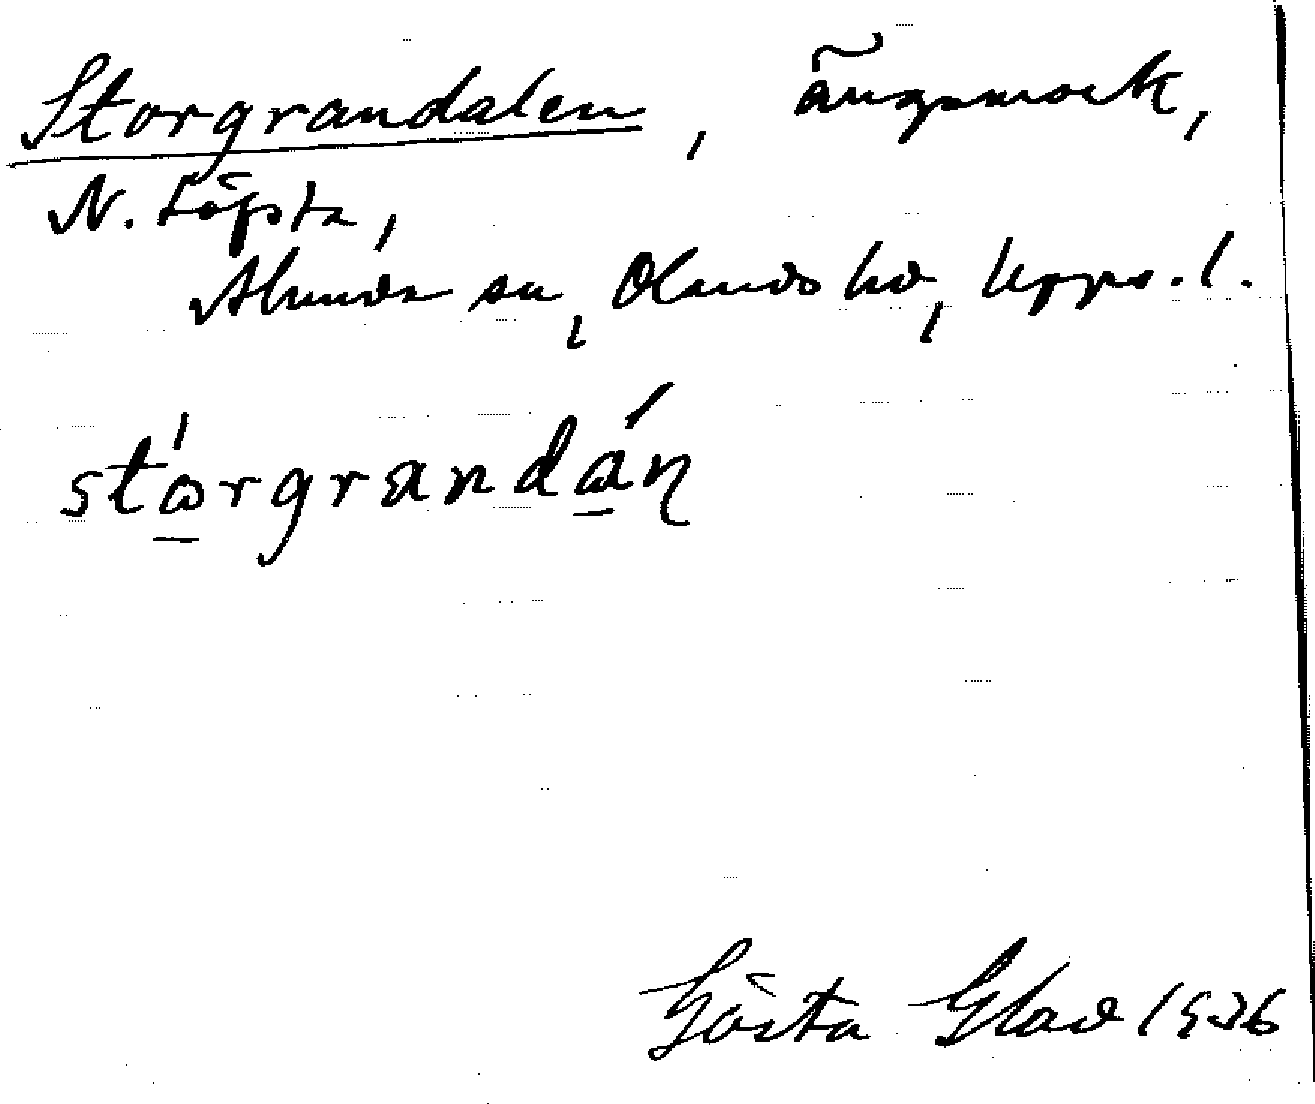 Storgrandalen, ängsmark,
N. Löfsta,
Alunda sn, Olands hd, Upps. l.
stɷ̲́rgrandɷ̲́ṇ
Gösta Glad 1936